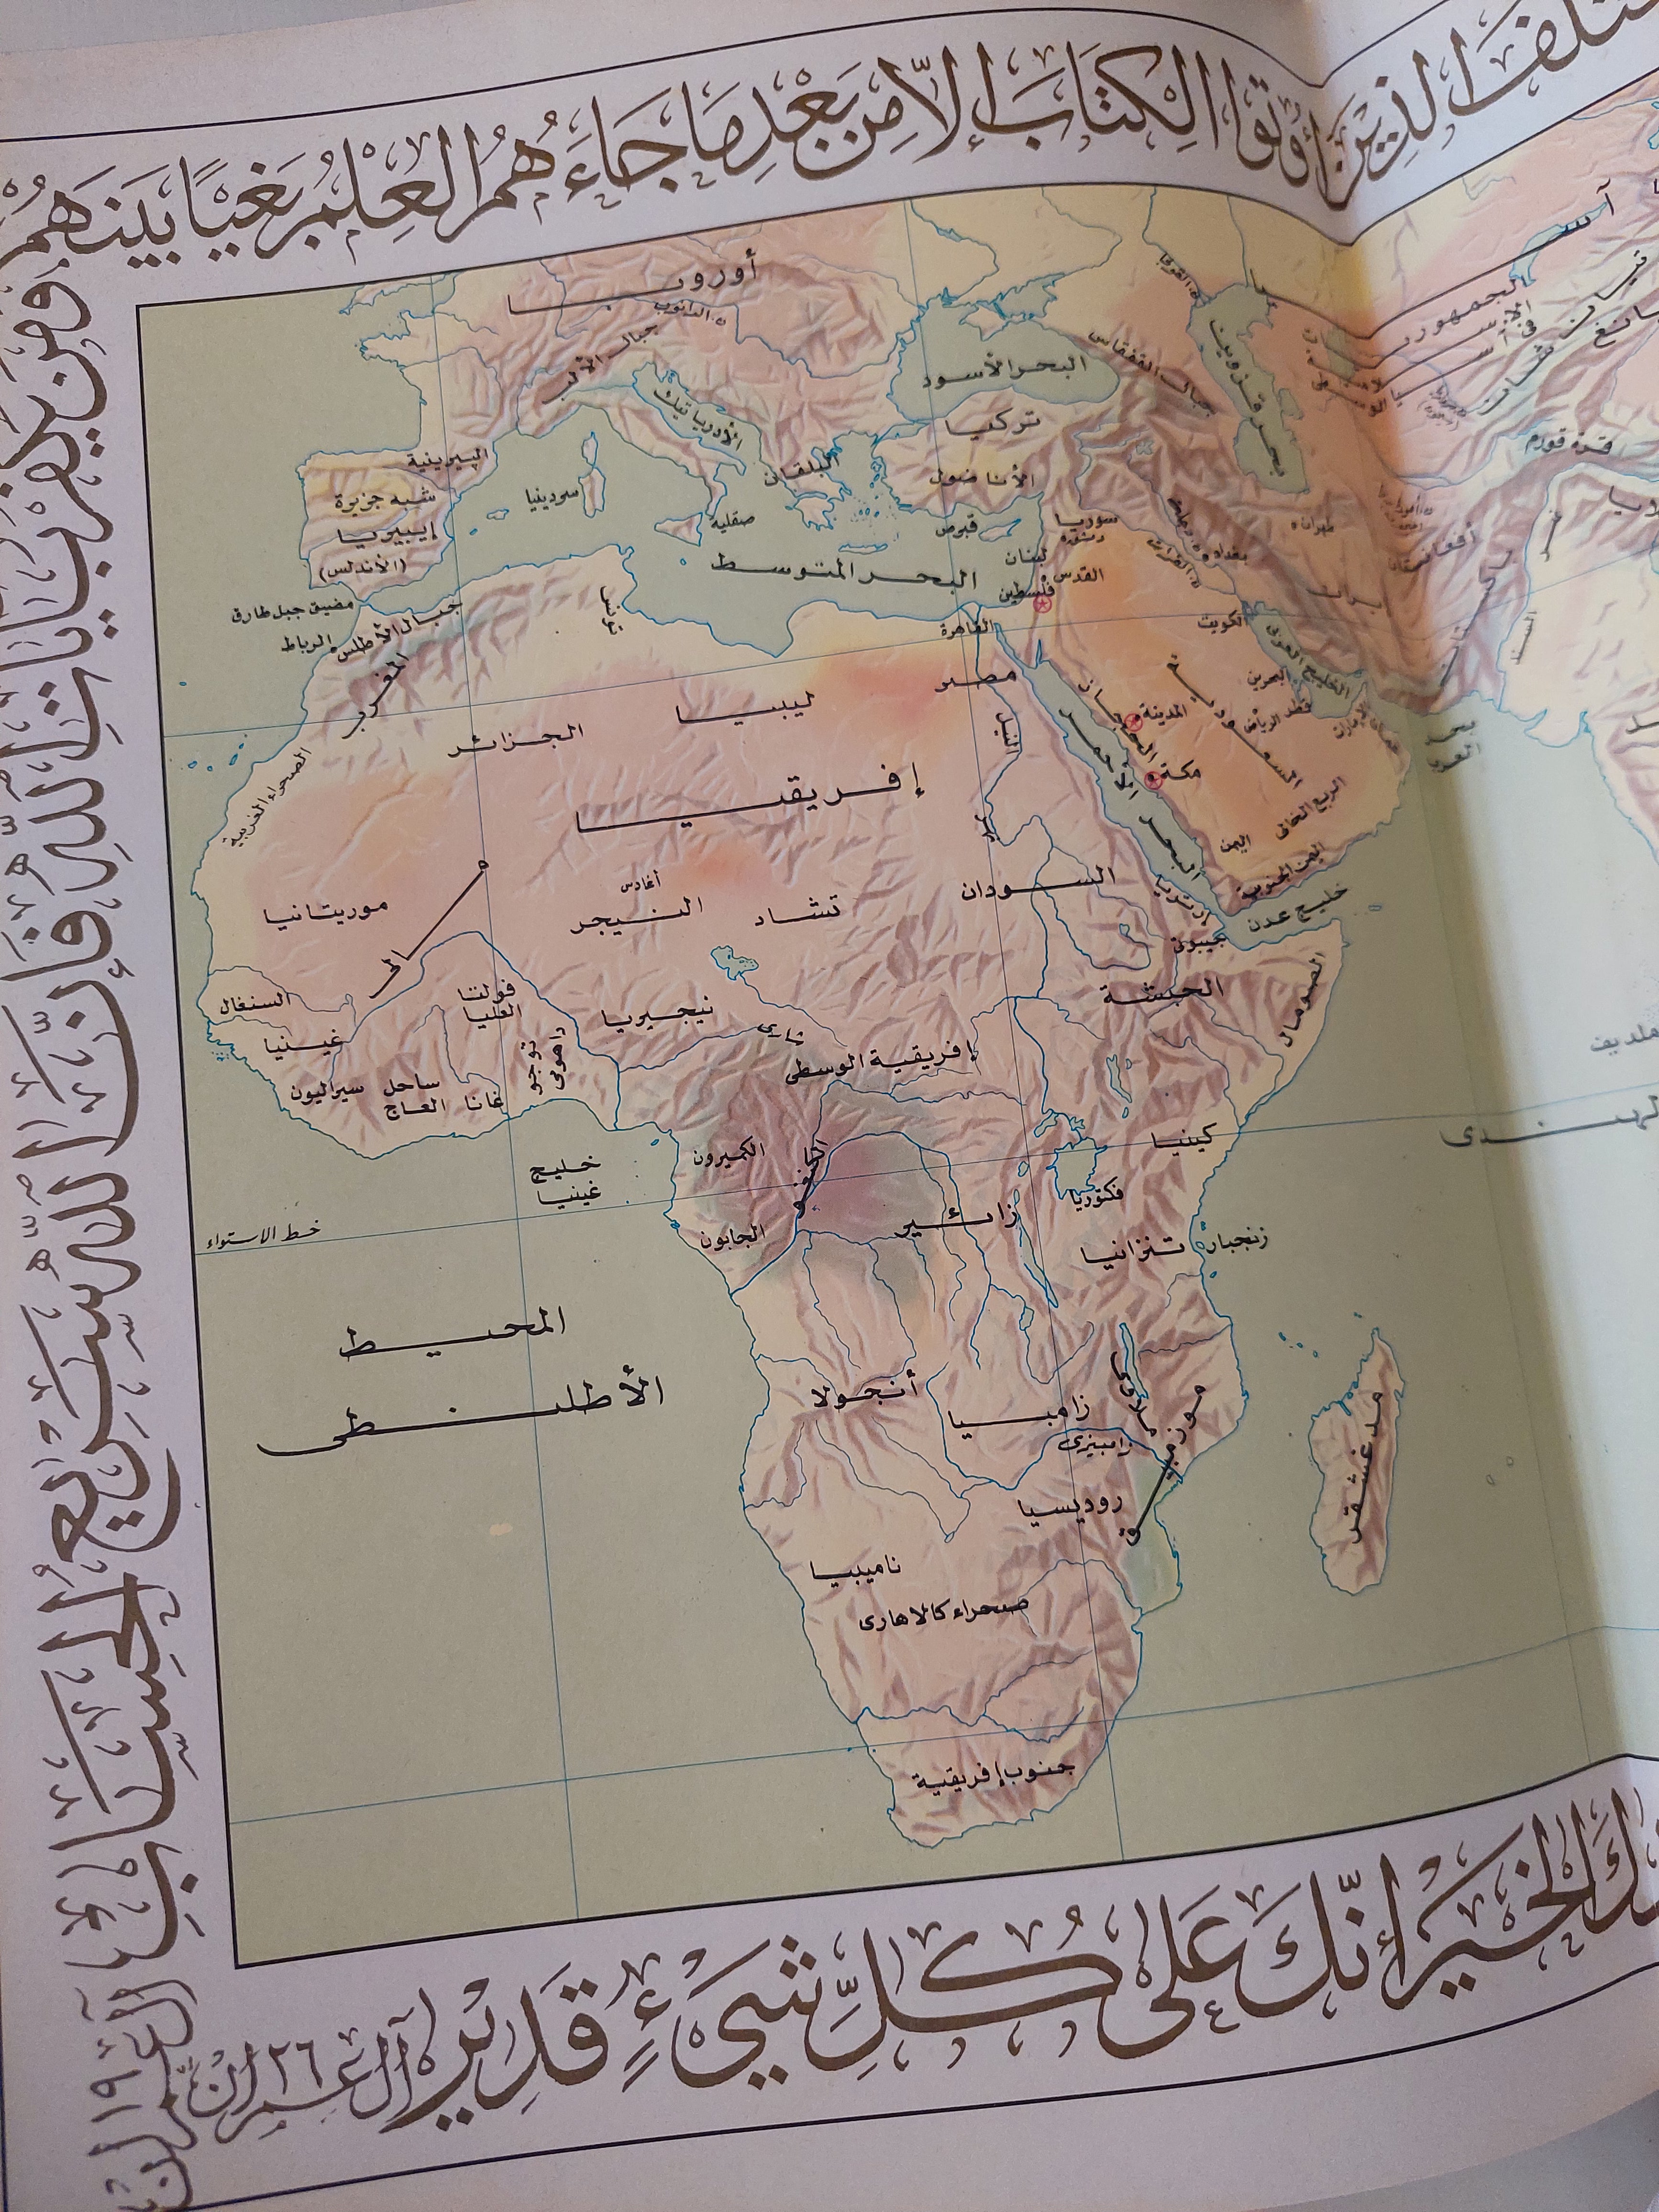 الذين أوتوا الكتاب إلا من بعد ما جاءهم العلم بغيا بينهم
ومن يكفر بآيات الله فإن الله سريع الحساب آل عمران ١٩
الخير إنك على كل شيء قدير آل عمران ٢٦
أوروبا
ن. الدانوب
جبال الألب
البحر الأسود
جبال القفقاس
بحر قزوين
تركيا
الأناضول
الأدرياتيك
البلقان
البيرينية
شبه جزيرة
إيبيريا
(الأندلس)
سردينيا
صقلية
قبرص
سوريا
دمشق
لبنان
القدس
فلسطين
بغداد
ن. الفرات
طهران
أفغانستان
باكستان
السند
قرة قورم
آسيا
البحر المتوسط
مضيق جبل طارق
الرباط
جبال الأطلس
المغرب
تونس
القاهرة
مصر
النيل
نهر
ليبيا
الجزائر
الصحراء الغربية
إفريقيا
الكويت
الخليج العربي
البحرين
قطر
الرياض
السعودية
الحجاز
المدينة
مكة
البحر الأحمر
الربع الخالي
اليمن
اليمن الجنوبية
خليج عدن
بحر
العرب
موريتانيا
مالي
أغادس
النيجر
تشاد
السودان
إرتريا
جيبوتي
الحبشة
الصومال
السنغال
غينيا
سيراليون
ساحل
العاج
فولتا
العليا
غانا
توجو
داهومي
نيجيريا
شاري
إفريقية الوسطى
الكميرون
خليج
غينيا
الجابون
الكونغو
زائير
كينيا
فكتوريا
تنزانيا
زنجبار
خط الاستواء
المحيط
الأطلنطى
الهندى
ملديف
أنجولا
زامبيا
زامبيزى
ملاوى
موزمبيق
روديسيا
ناميبيا
صحراء كالاهارى
مدغشقر
جنوب إفريقية